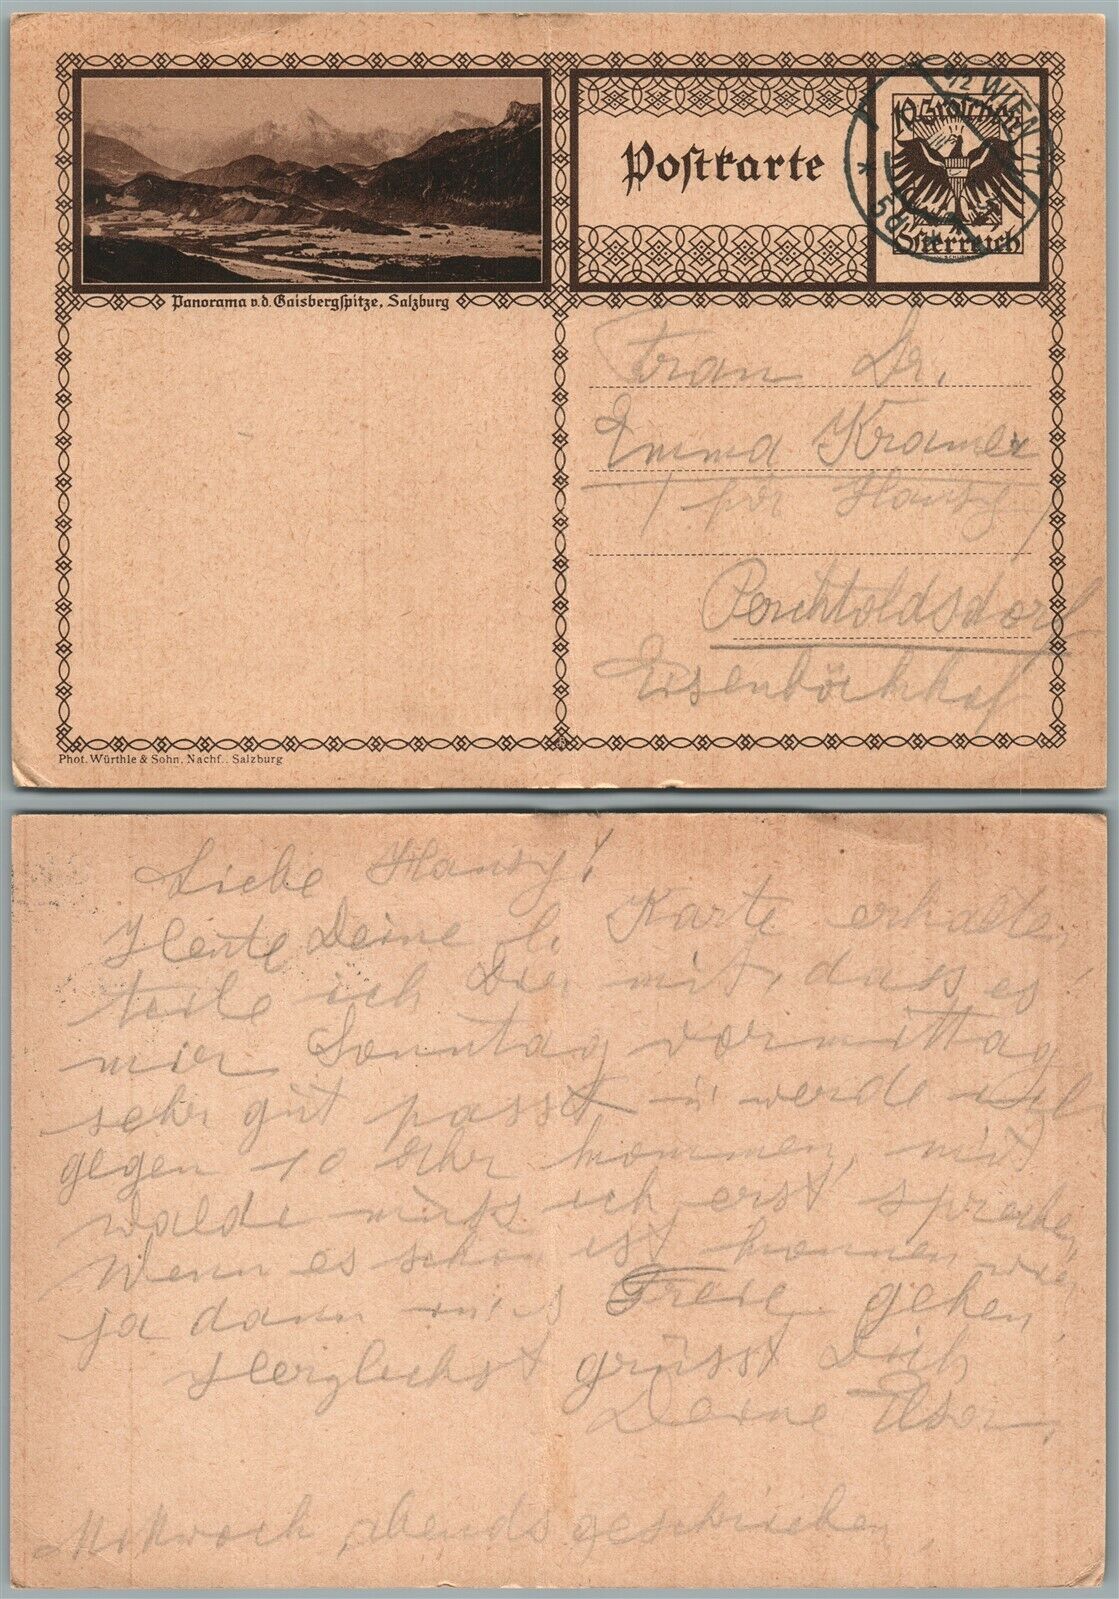 Postkarte
10 Groschen
Österreich
WIEN
Panorama v.d. Gaisbergspitze, Salzburg
Frau Dr.
Emma Kramer
/ für Hansy /
Perchtoldsdorf
Phot. Würthle & Sohn, Nachf., Salzburg
Liebe Hansy!
Heute Deine l. Karte erhalten,
teile ich Dir mit, dass es
mir Sonntag vormittag
sehr gut passt, u werde ich
gegen 10 Uhr kommen, mit
muss ich erst sprechen,
Wenn es schön ist können wir
ja dann ins Freie gehen,
Herzlichst grüsst Dich
Deine
Mittwoch abends geschrieben,